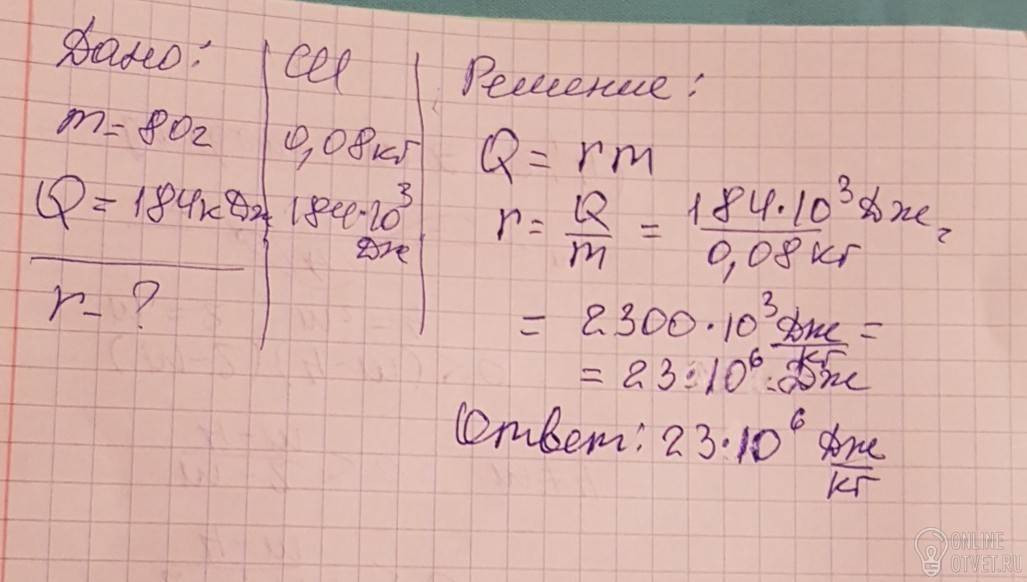 Дано:
m = 80г
Q = 184кДж
r - ?
СИ
0,08кг
184·10³
Дж
Решение:
Q = rm
r = Q/m = 184·10³Дж/0,08кг =
= 2300·10³ Дж/кг =
= 23·10⁶ Дж
Ответ: 23·10⁶ Дж/кг
ONLINE
OTVET.RU